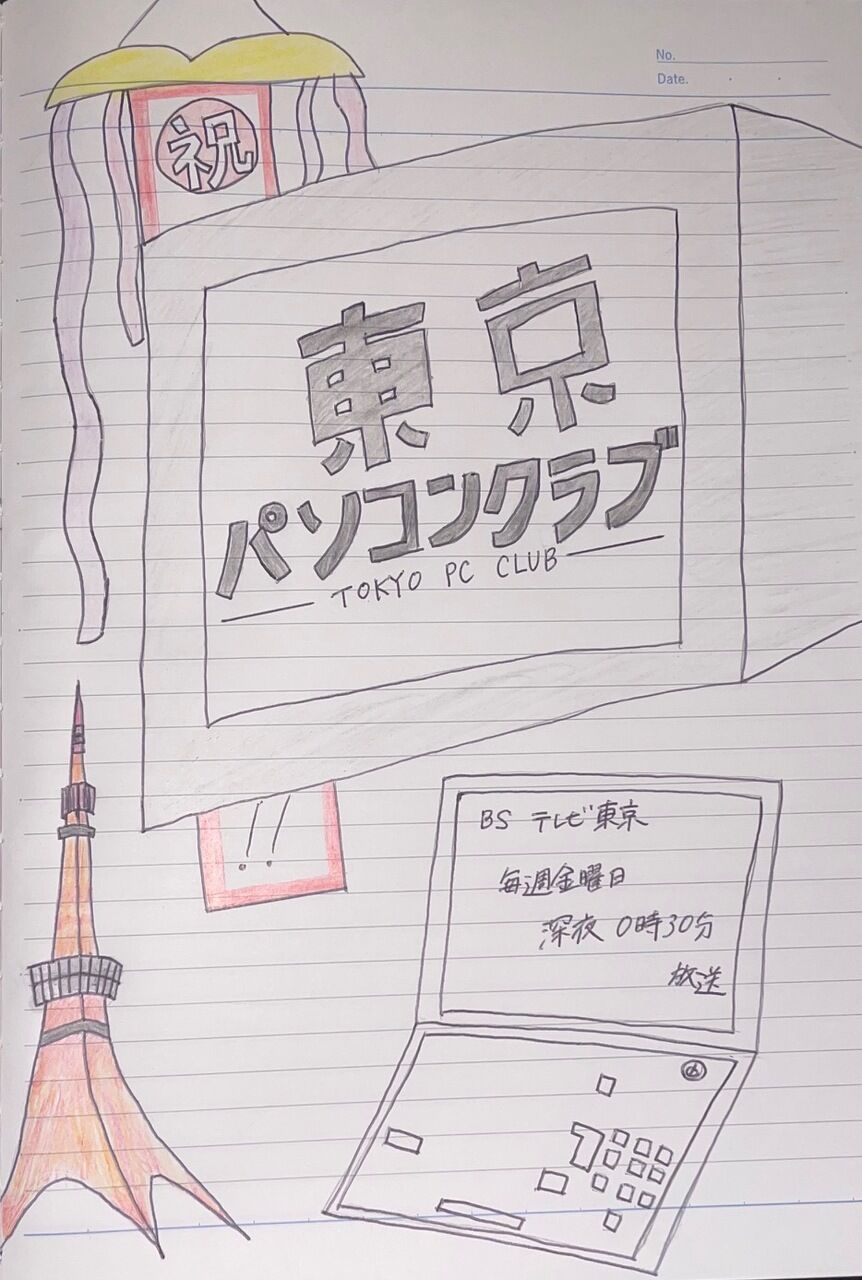 No.
Date.
祝
東京
パソコンクラブ
TOKYO PC CLUB
!!
BS テレビ東京
毎週金曜日
深夜 0時30分
放送